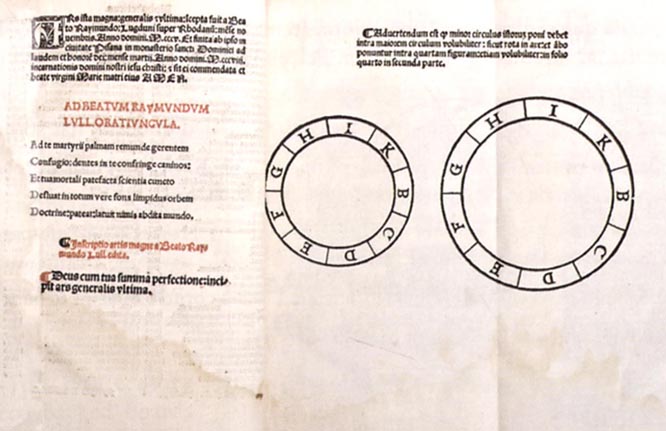 ista magna: generalis vltima: icepta fuit a Bea
to Raymundo: Lugduni super Rhodanū: mēse no
uembris. Anno domini. Et finita ab ipso in
ciuitate Pisana in monasterio sancti Dominici ad
laudem et honorē dei: mense martij. Anno domini.
incarnationis domini nostri iesu christi: sit ei commendata et
beate virgini Marie matri eius AMEN.
AD BEATVM RAYMVNDVM
LVLL. ORATIVNCVLA.
Ad te martyrii palmam gerentem
Confugio: dentes in te confringe caninos:
Et tua mortali patefacta scientia cuncto
Defluat in totum vere fons limpidus orbem
Doctrine: pateat: latuit nimis abdita mundo.
Inscriptio artis magne a Beato Ray
mundo Lull. edita.
Deus cum tua summa perfectione: inci
pit ars generalis vltima.
Aduertendum est ꝙ minor circulus istorum poni debet
intra maiorem circulum volubiliter: sicut rota in
ponuntur intra quartam figuram etiam volubiliter: in folio
quarto in secunda parte.
B C D E F G H I K
B C D E F G H I K